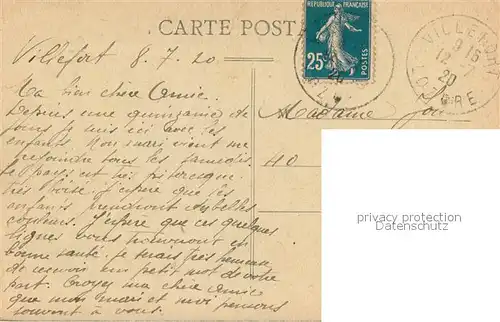 CARTE POSTALE
RÉPUBLIQUE FRANÇAISE
25c
POSTES
VILLEFORT
9 15
12 - 7
20
LOZÈRE
Villefort 8.7.20
Ma bien chère Amie.
Depuis une quinzaine de
jours je suis ici avec les
enfants. Mon mari vient me
rejoindre tous les samedis.
Le pays est très pittoresque
très boisé. J'espère que les
enfants prendront de belles
couleurs. J'espère que ces quelques
lignes vous trouveront en
bonne santé. Je serais très heureuse
de recevoir un petit mot de votre
part. Croyez ma chère Amie
que mon mari et moi pensons
souvent à vous.
Madame
40
privacy protection
oldthing.de